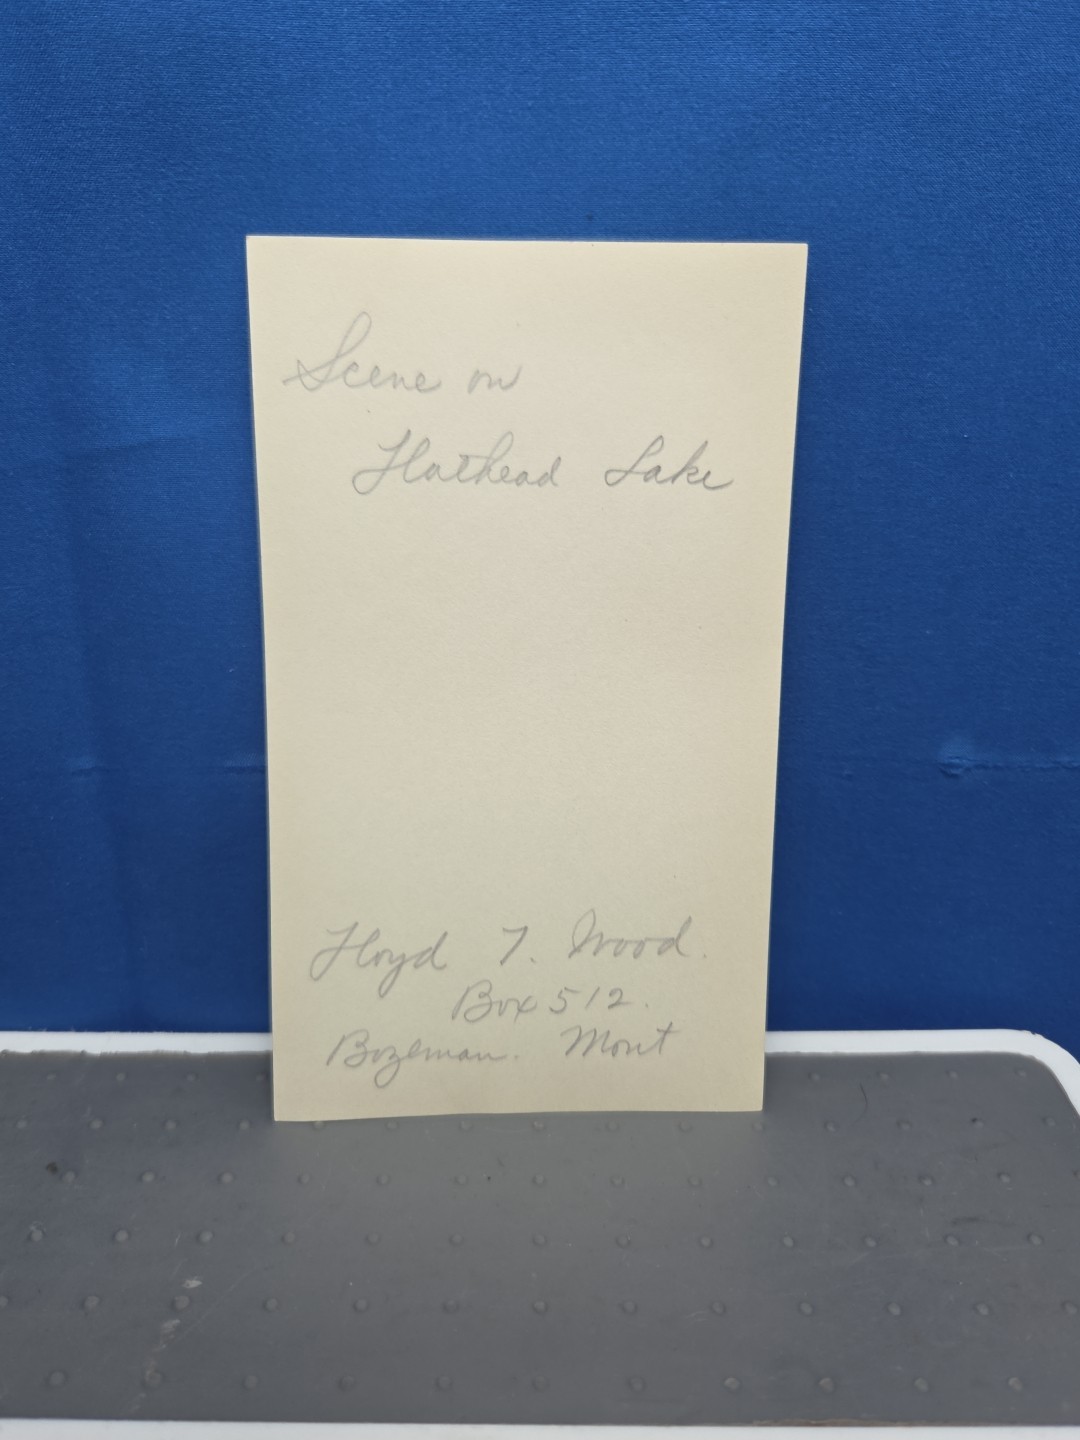 Scene on
Flathead Lake
Floyd T. Wood.
Box 512.
Bozeman. Mont